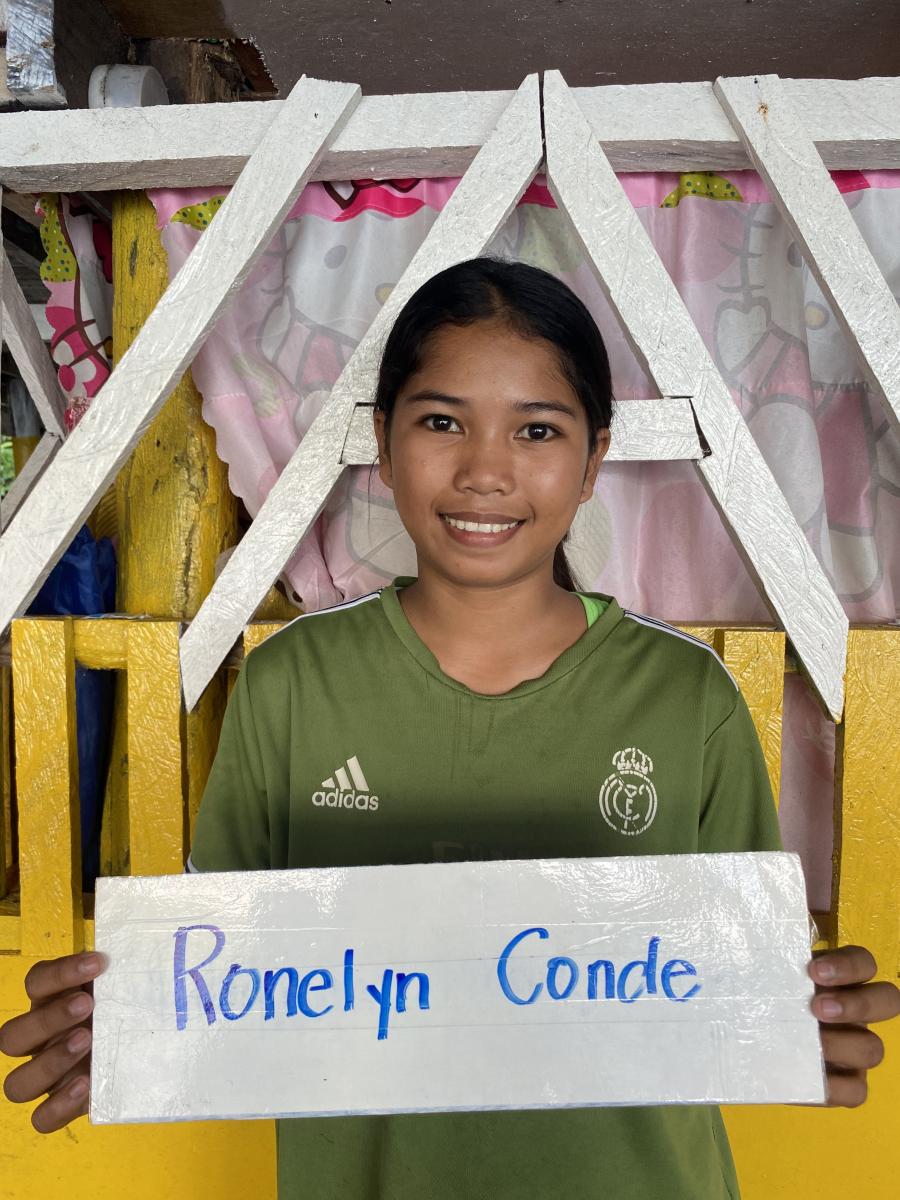 adidas
Ronelyn Conde